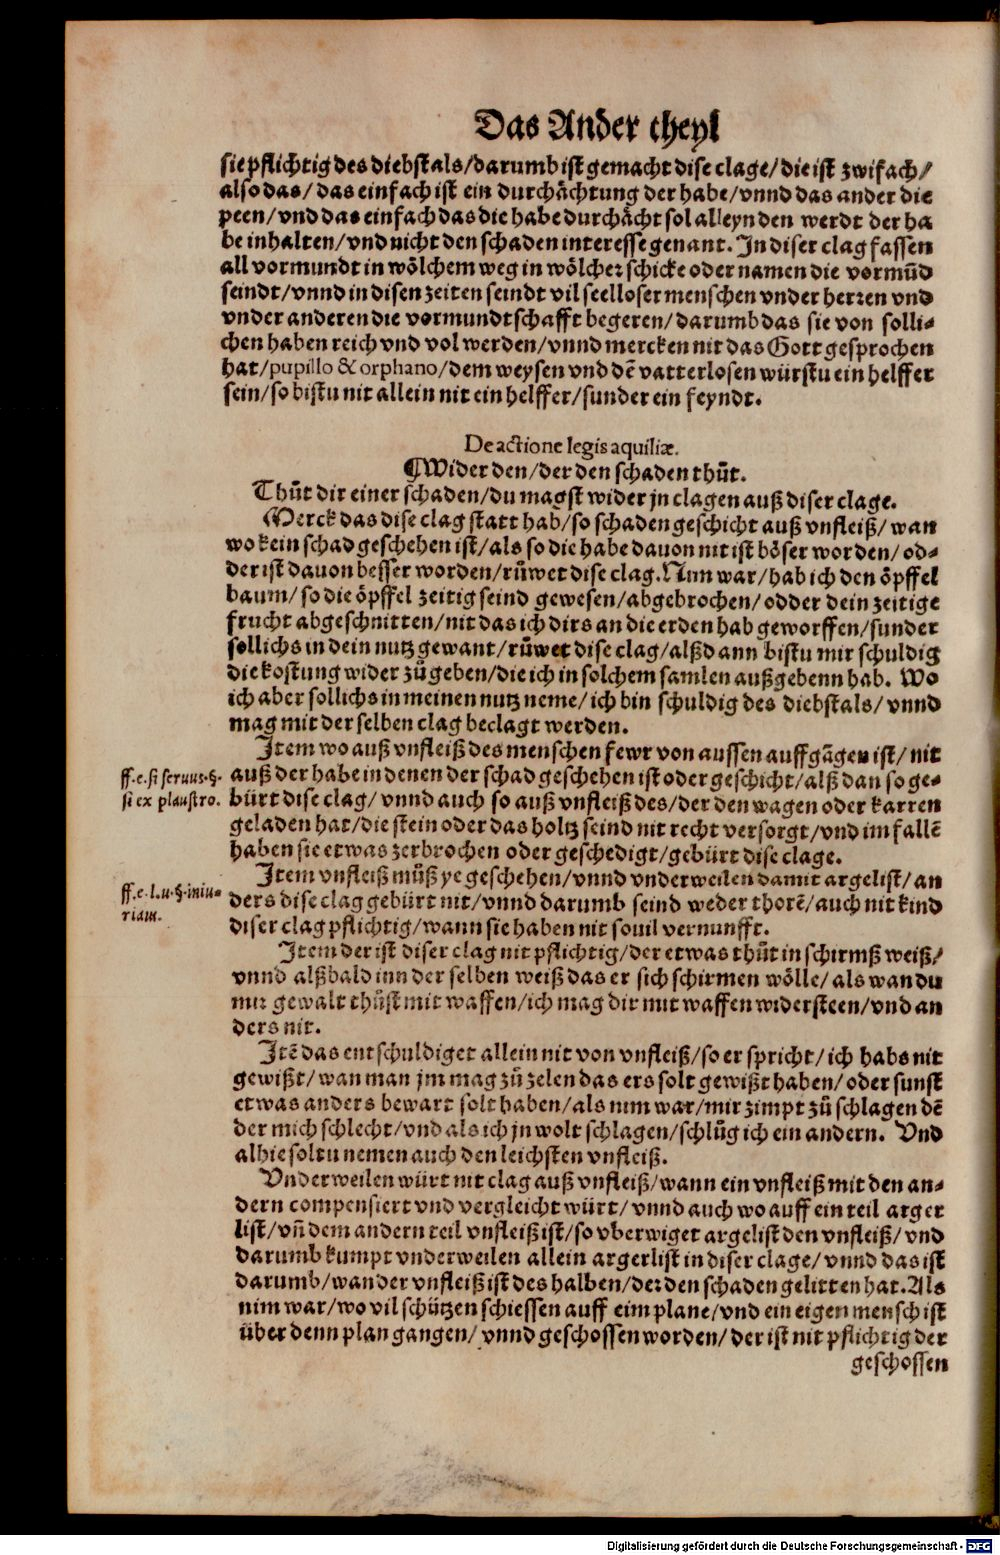 Das Ander theyl
sie pflichtig des diebstals/darumb ist gemacht dise clage/die ist zwifach/
also das/ das einfach ist ein durchåchtung der habe/vnnd das ander die
peen/vnd das einfach das die habe durchåcht sol alleyn den werdt der ha
be inhalten/vnd nicht den schaden interesse genant. In diser clag fassen
all vormundt in wölchem weg in wölcher schicke oder namen die vormũd
seindt/vnnd in disen zeiten seindt vil seelloser menschen vnder herren vnd
vnder anderen die vormundtschafft begeren/darumb das sie von solli⸗
chen haben reich vnd vol werden/vnnd mercken nit das Gott gesprochen
hat/pupillo & orphano/dem weysen vnd dẽ vatterlosen würstu ein helffer
sein/so bistu nit allein nit ein helffer/sunder ein feyndt.
De actione legis aquiliæ.
¶Wider den/der den schaden thůt.
Thůt dir einer schaden/du magst wider jn clagen auß diser clage.
Merck das dise clag statt hab/so schaden geschicht auß vnfleiß/wan
wo kein schad geschehen ist/als so die habe dauon nit ist böser worden/od⸗
der ist dauon besser worden/růwet dise clag. Nun war/hab ich den öpffel
baum/so die öpffel zeitig seind gewesen/abgebrochen/odder dein zeitige
frucht abgeschnitten/nit das ich dirs an die erden hab geworffen/sunder
sollichs in dein nutz gewant/růwet dise clag/alßdann bistu mir schuldig
die kostung wider zůgeben/die ich in solchem samlen außgebenn hab. Wo
ich aber sollichs in meinen nutz neme/ich bin schuldig des diebstals/vnnd
mag mit der selben clag beclagt werden.
Item wo auß vnfleiß des menschen fewr von aussen auffgãgen ist/nit
auß der habe in denen der schad geschehen ist oder geschicht/alß dan so ge⸗
bürt dise clag/vnnd auch so auß vnfleiß des/der den wagen oder karren
geladen hat/die stein oder das holtz seind nit recht versorgt/vnd im fallẽ
haben sie etwas zerbrochen oder geschedigt/gebürt dise clage.
ff.e.si seruus.§.
si ex plaustro.
Item vnfleiß můß ye geschehen/vnnd vnderweilen damit argelist/an
ders dise clag gebürt nit/vnnd darumb seind weder thorẽ/auch nit kind
diser clag pflichtig/wann sie haben nit souil vernunfft.
ff.e.l.u.§.iniu⸗
riam.
Item der ist diser clag nit pflichtig/der etwas thůt in schirmß weiß/
vnnd alßbald inn der selben weiß das er sich schirmen wölle/als wan du
mir gewalt thůst mit waffen/ich mag dir mit waffen widersteen/vnd an
ders nit.
Itẽ das entschuldiget allein nit von vnfleiß/so er spricht/ich habs nit
gewißt/wan man jm mag zů zelen das ers solt gewißt haben/oder sunst
etwas anders bewart solt haben/als nim war/mir zimpt zů schlagen dẽ
der mich schlecht/vnd als ich jn wolt schlagen/schlůg ich ein andern. Vnd
alhie soltu nemen auch den leichsten vnfleiß.
Vnderweilen würt nit clag auß vnfleiß/wann ein vnfleiß mit den an⸗
dern compensiert vnd vergleicht würt/vnnd auch wo auff ein teil arger
list/vñ dem andern teil vnfleiß ist/so vberwiget argelist den vnfleiß/vnd
darumb kumpt vnderweilen allein argerlist in diser clage/vnnd das ist
darumb/wan der vnfleiß ist des halben/der den schaden gelitten hat. Als
nim war/wo vil schützen schiessen auff eim plane/vnd ein eigen mensch ist
über denn plan gangen/vnnd geschossen worden/der ist nit pflichtig der
geschossen
Digitalisierung gefördert durch die Deutsche Forschungsgemeinschaft - DFG